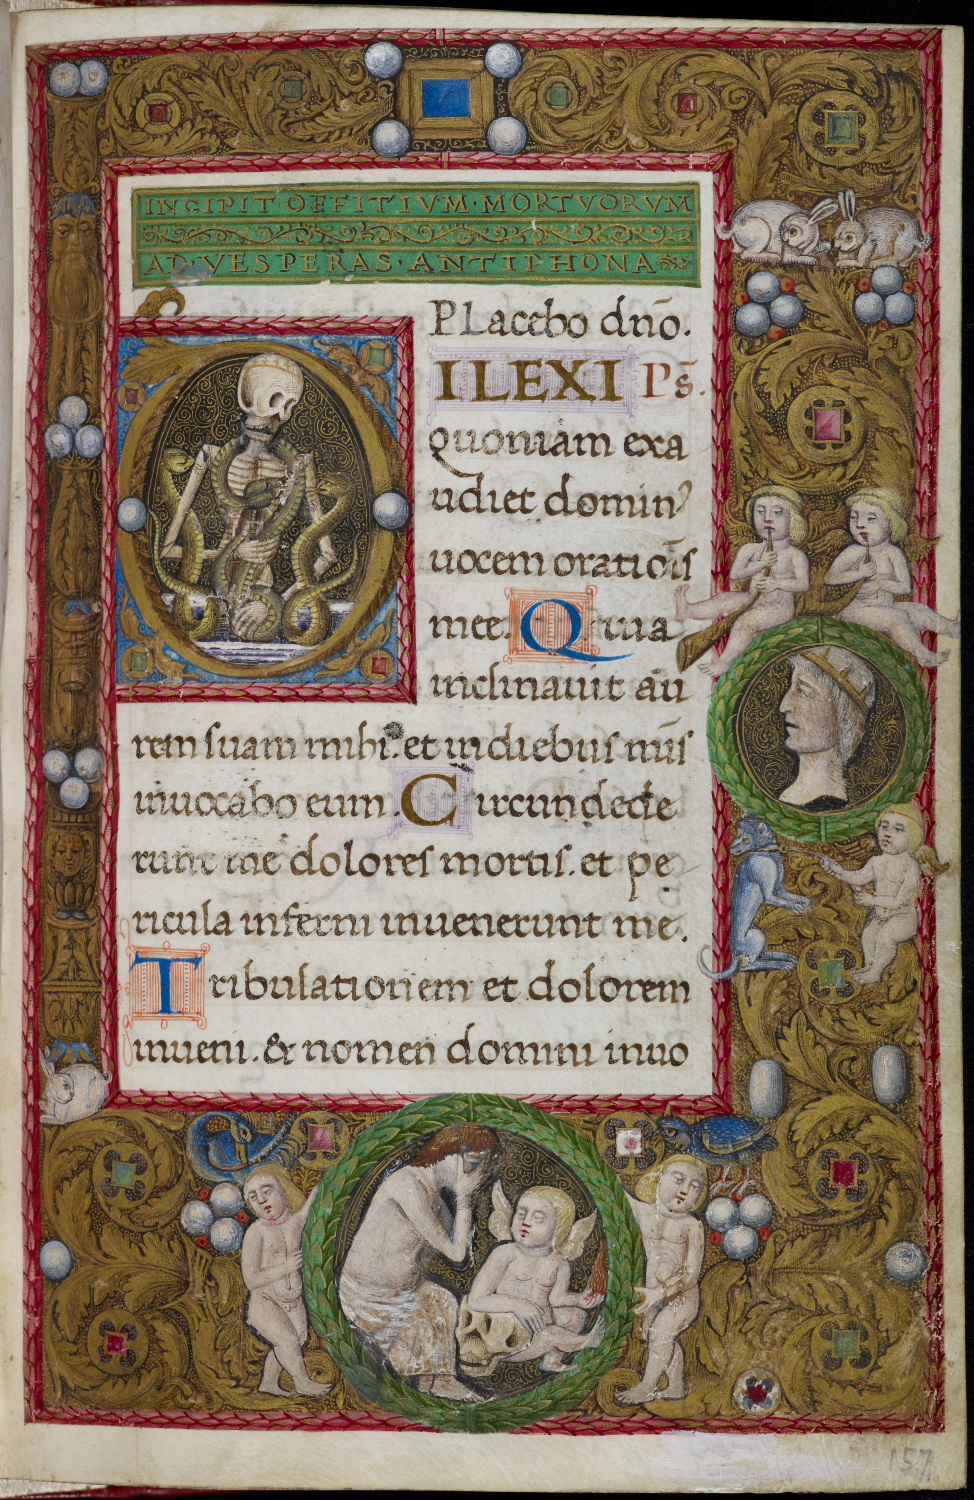 INCIPIT OFFITIVM MORTVORVM
AD VESPERAS ANTIPHONA
Placebo dño.
DILEXI Ps̃.
quoniam exa
udiet domin⁹
uocem oratiõis
mee. Quia
inclinauit aũ
rem suam mihi. et in diebus mĩs
inuocabo eum. Circundede
runt me dolores mortis. et pe
ricula inferni inuenerunt me.
Tribulationem et dolorem
inueni. & nomen domini inuo
157